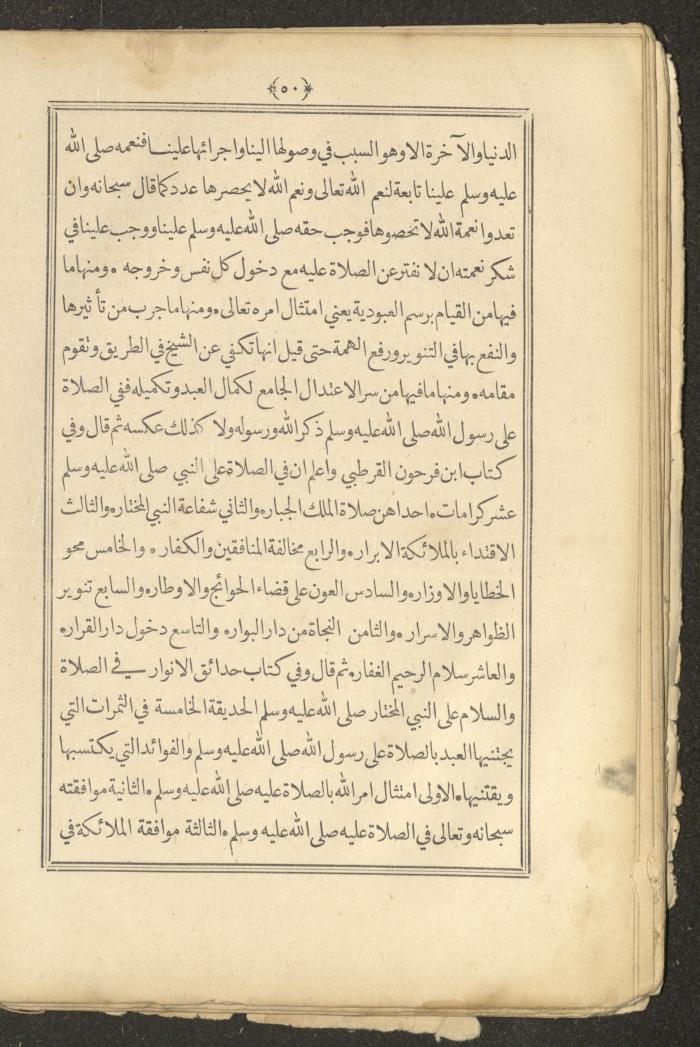 ﴿٥٠﴾
الدنيا والآخرة الا وهو السبب في وصولها الينا واجرائها علينا فنعمه صلى الله
عليه وسلم علينا تابعة لنعم الله تعالى ونعم الله لا يحصرها عدد كما قال سبحانه وان
تعدوا نعمة الله لا تحصوها فوجب حقه صلى الله عليه وسلم علينا ووجب علينا في
شكر نعمته ان لا نفتر عن الصلاة عليه مع دخول كل نفس وخروجه ۰ ومنها ما
فيها من القيام برسم العبودية يعني امتثال امره تعالى ۰ ومنها ما جرب من تأثيرها
والنفع بها في التنوير ورفع الهمة حتى قيل انها تكفي عن الشيخ في الطريق وتقوم
مقامه ۰ ومنها ما فيها من سر الاعتدال الجامع لكمال العبد وتكميله ففي الصلاة
على رسول الله صلى الله عليه وسلم ذكر الله ورسوله ولا كذلك عكسه ثم قال وفي
كتاب ابن فرحون القرطبي واعلم ان في الصلاة على النبي صلى الله عليه وسلم
عشر كرامات ۰ احداهن صلاة الملك الجبار ۰ والثاني شفاعة النبي المختار ۰ والثالث
الاقتداء بالملائكة الابرار ۰ والرابع مخالفة المنافقين والكفار ۰ والخامس محو
الخطايا والاوزار ۰ والسادس العون على قضاء الحوائج والاوطار ۰ والسابع تنوير
الظواهر والاسرار ۰ والثامن النجاة من دار البوار ۰ والتاسع دخول دار القرار ۰
والعاشر سلام الرحيم الغفار ۰ ثم قال وفي كتاب حدائق الانوار في الصلاة
والسلام على النبي المختار صلى الله عليه وسلم الحديقة الخامسة في الثمرات التي
يجتنيها العبد بالصلاة على رسول الله صلى الله عليه وسلم والفوائد التي يكتسبها
ويقتنيها ۰ الاولى امتثال امر الله بالصلاة عليه صلى الله عليه وسلم ۰ الثانية موافقته
سبحانه وتعالى في الصلاة عليه صلى الله عليه وسلم ۰ الثالثة موافقة الملائكة في